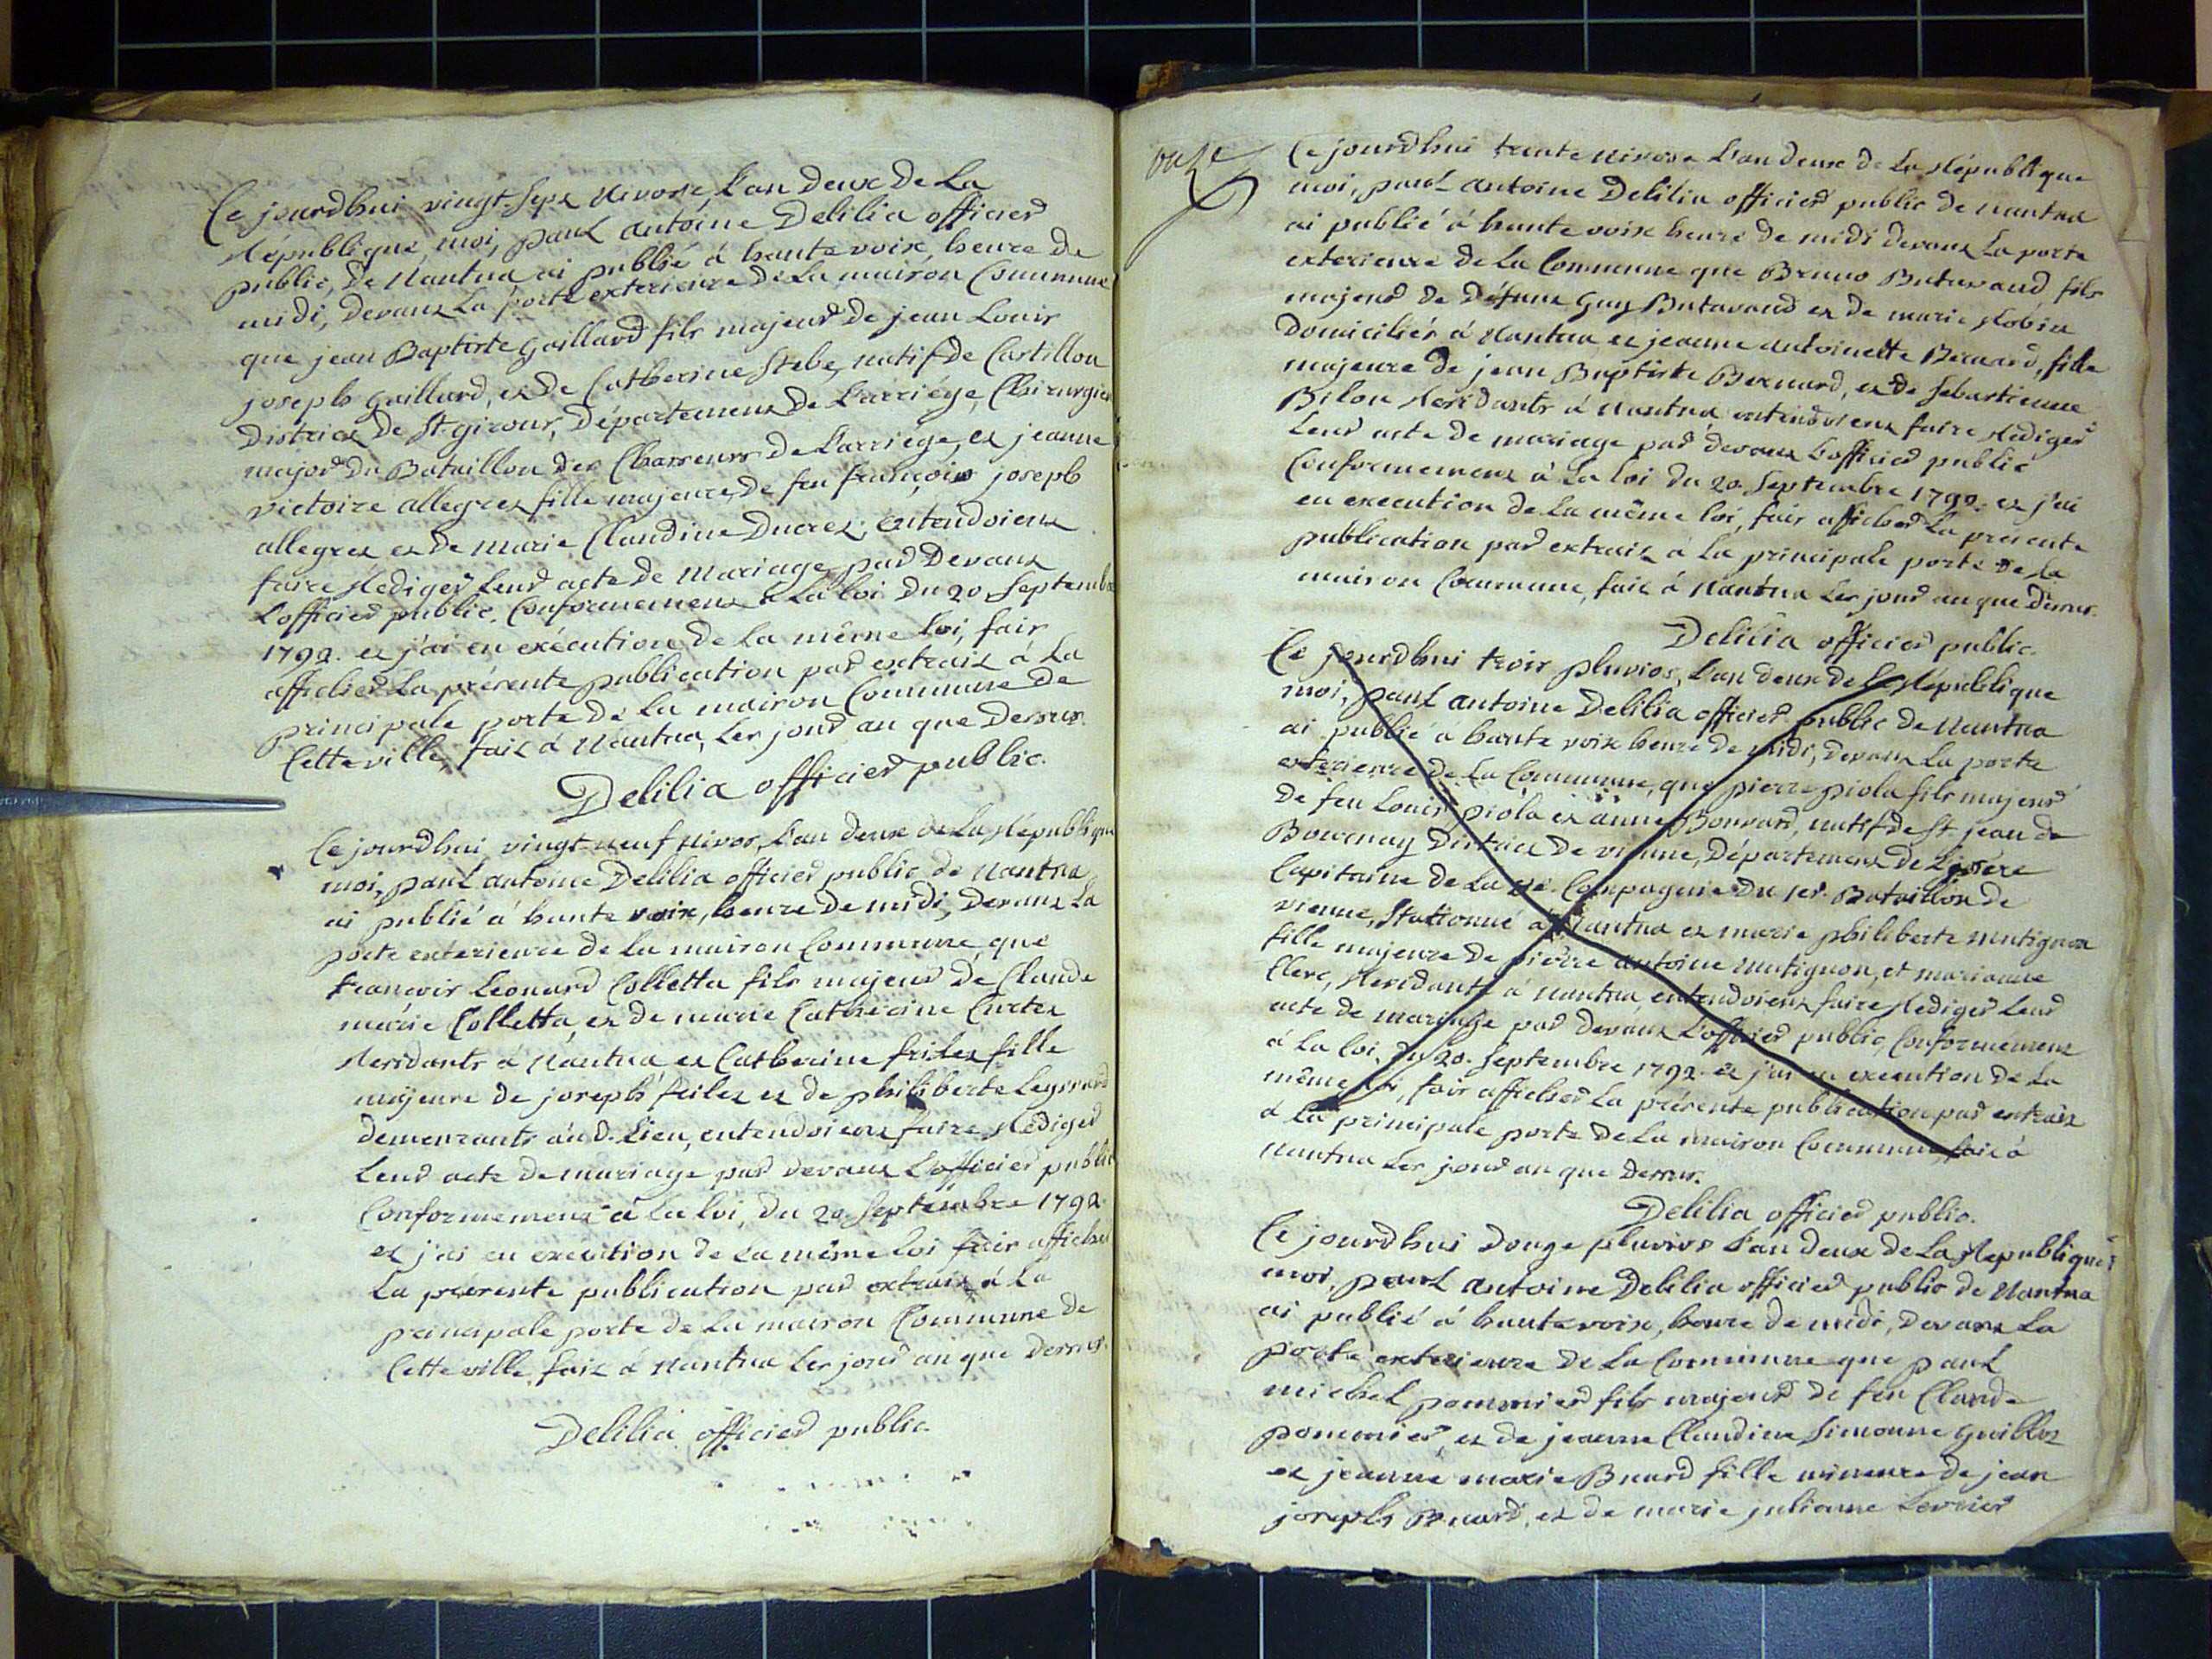 Ce jourdhui vingt-sept Nivose, L'an deux de La
République, moi, paul antoine Delilia officier
public, de Nantua ai publié à haute voix, heure de
midi, devant La porte exterieure de La maison Commune
que jean Baptiste gaillard fils majeur de jean Louis
joseph gaillard, et de Catherine Stebe, natif de Castillon
District de St. girous, Département de L'arriége, Chirurgien
major du Bataillon des Chasseurs de L'arriége, et jeanne
victoire allegret fille majeure, de feu françois joseph
allegret et de marie Claudine Ducret; entendoient
faire Rediger leur acte de Mariage par Devant
L'officier public, Conformement à La loi du 20. Septembre
1792. et j'ai en exécution de la même loi, fait
afficher La présente publication par extrait à La
principale porte de La maison Commune de
Cette ville, fait à Nantua, Les jour an que dessus.
Delilia officier public.
Ce jourdhui vingt-neuf Nivos, L'an deux de La République
moi, paul antoine Delilia officier public de Nantua
ai publié à haute voix, heure de midi, Devant La
porte exterieure de La maison Commune, que
francois Leonard Colletta fils majeur de Claude
marie Colletta, et de marie Catherine Curtet
Residants à Nantua et Catherine frilet fille
majeure de joseph frilet et de philiberte Leymard
demeurants aud. Lieu, entendoient faire Rediger
Leur acte de mariage par devant L'officier public
Conformement à La loi, du 20. Septembre 1792.
et j'ai en execution de La même loi fait afficher
La présente publication par extrait à La
principale porte de La maison Commune de
Cette ville, fait à Nantua Les jour an que dessus.
Delilia officier public.
onze
Ce jourdhui trente nivose L'an deux de La République
moi, paul antoine Delilia officier public de nantua
ai publié à haute voix heure de midi devant La porte
exterieure de La Commune que Bruno Butavand fils
majeur de défunt Guy Butavand et de marie Robin
Domiciliés à Nantua et jeanne antoinette Bernard, fille
majeure de jean Baptiste Bernard, et de Sebastienne
Bilon Residants à nantua entendoient faire Rediger
Leur acte de mariage par devant L'officier public
Conformement à La loi du 20. Septembre 1792. et j'ai
en execution de La même loi, fait afficher La présente
publication par extrait à la principale porte de la
maison Commune, fait à Nantua Les jour an que dessus.
Delilia officier public.
Ce jourdhui trois pluvios, L'an deux de La République
moi, paul antoine Delilia officier public de Nantua
ai publié à haute voix heure de midi, devant La porte
exterieure de La Commune, que pierre piola fils majeur
de feu Louis piola et anne Bonvard, natif de St. jean de
Bournay District de vienne, Département de L'isére
Capitaine de La Compagnie du 1er. Bataillon de
vienne, Stationné à Nantua et marie philiberte mutignon
fille majeure de pierre antoine mutignon, et marianne
Clerc, Residants à nantua, entendoient faire Rediger Leur
acte de mariage par devant L'officier public, Conformement
à La loi, du 20. Septembre 1792. et j'ai en execution de La
même loi, fait afficher La présente publication par extrait
à La principale porte de La maison Commune, fait à
Nantua Les jour an que dessus.
Delilia officier public.
Ce jourdhui douze pluvios L'an deux de La République
moi, paul antoine Delilia officier public de Nantua
ai publié à haute voix, heure de midi, devant La
porte exterieure de La Commune que paul
michel pommier fils majeur de feu Claude
pommier, et de jeanne Claudine Simonne Guillot
et jeanne marie Buard fille mineure de jean
joseph Buard, et de marie julienne Levrier